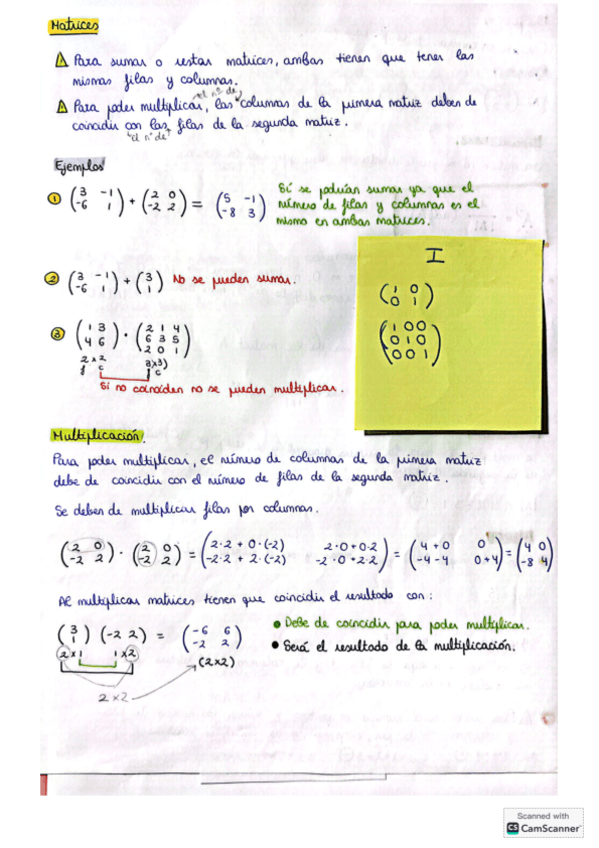 Matrices
⚠ Para sumar o restar matrices, ambas tienen que tener las
mismas filas y columnas.
el nº de
⚠ Para poder multiplicar, las columnas de la primera matriz deben de
coincidir con las filas de la segunda matriz.
el nº de
Ejemplos
① (3 -1 / -6 1) + (2 0 / -2 2) = (5 -1 / -8 3)
Sí se podrían sumar ya que el
número de filas y columnas es el
mismo en ambas matrices.
I
(1 0 / 0 1)
(1 0 0 / 0 1 0 / 0 0 1)
② (3 -1 / -6 1) + (3 / 1) No se pueden sumar.
③ (1 3 / 4 6) · (2 1 4 / 6 3 5 / 2 0 1)
2x2 3x3
f c c
Si no coinciden no se pueden multiplicar.
Multiplicación.
Para poder multiplicar, el número de columnas de la primera matriz
debe de coincidir con el número de filas de la segunda matriz.
Se deben de multiplicar filas por columnas.
(2 0 / -2 2) · (2 0 / -2 2) = (2·2 + 0·(-2) 2·0+0·2 / -2·2 + 2·(-2) -2·0+2·2) = (4+0 0 / -4-4 0+4) = (4 0 / -8 4)
Al multiplicar matrices tienen que coincidir el resultado con:
(3 / 1) (-2 2) = (-6 6 / -2 2)
2x1 1x2 (2x2)
2x2
● Debe de coincidir para poder multiplicar.
● Será el resultado de la multiplicación.
Scanned with
CS CamScanner